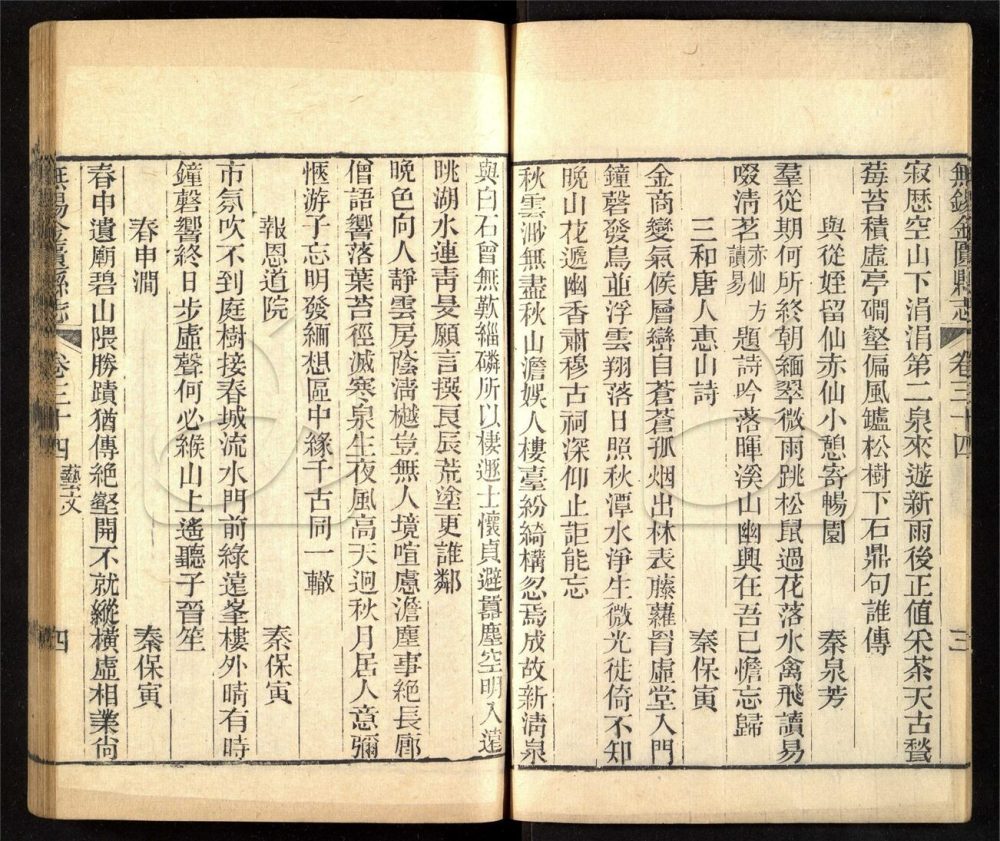 無錫金匱縣志 卷三十四 三
寂歷空山下涓涓第二泉來遊新雨後正值采茶天古甃
莓苔積虛亭磵壑偏風鑪松樹下石鼎句誰傳
與從姪留仙赤仙小憩寄暢園 秦泉芳
羣從期何所終朝緬翠微雨跳松鼠過花落水禽飛讀易
啜淸茗赤仙方讀易題詩吟落暉溪山幽興在吾已憺忘歸
三和唐人惠山詩 秦保寅
金商變氣候層巒自蒼蒼孤烟出林表藤蘿罥虛堂入門
鐘磬發鳥並浮雲翔落日照秋潭水淨生微光徙倚不知
晚山花遞幽香肅穆古祠深仰止詎能忘
秋雲渺無盡秋山澹娛人樓臺紛綺構忽焉成故新淸泉
與白石曾無歎緇磷所以棲遯士懷貞避囂塵空明入遠
眺湖水連靑旻願言撰良辰荒塗更誰鄰
晚色向人靜雲房陰淸樾豈無人境喧慮澹塵事絕長廊
僧語響落葉苔徑滅寒泉生夜風高天迥秋月居人意彌
愜游子忘明發緬想區中緣千古同一轍
報恩道院 秦保寅
市氛吹不到庭樹接春城流水門前綠遠峯樓外晴有時
鐘磬響終日步虛聲何必緱山上遙聽子晉笙
春申澗 秦保寅
春申遺廟碧山隈勝蹟猶傳絕壑開不就縱橫虛相業尙
無錫金匱縣志 卷三十四 藝文 四